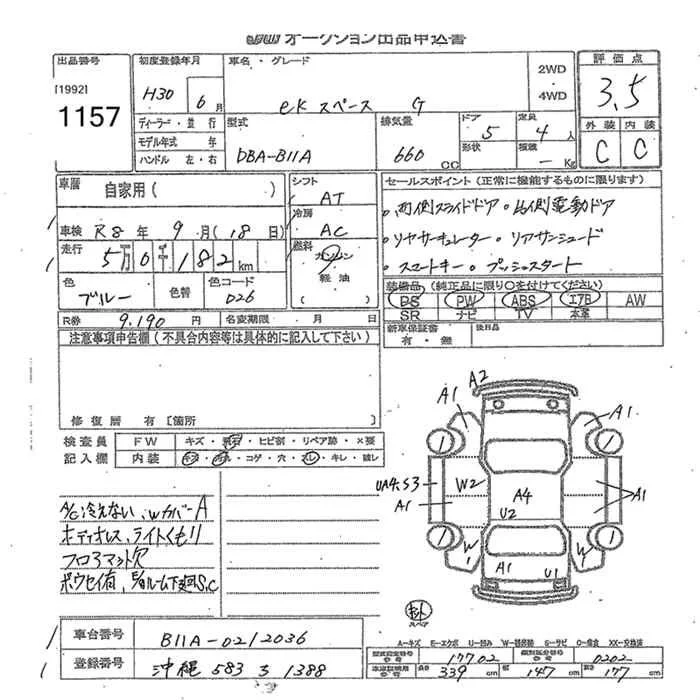 オークション出品申込書
出品番号 初度登録年月 車名・グレード 2WD・4WD 評価点
[1992]
1157
H30 6月 eK スペース G 3.5
ディーラー・並行 型式 排気量 ドア 5 定員 4人 外装 内装
モデル年式 年 形状 積載 －Kg C C
ハンドル 左・右 DBA-B11A 660CC
車歴 自家用( ) シフト AT セールスポイント(正常に機能するものに限ります)
車検 R8年 9月(18日) 冷房 AC ・両側スライドドア・片側電動ドア
走行 5万0千182km 燃料 ガソリン 軽油 ・リヤサーキュレーター・リアサンシェード
・スマートキー・プッシュスタート
色 ブルー 色替 色コード D26
装備品(純正品に限り○を付けてください)
PS PW ABS エアB AW
SR ナビ TV 本革
R券 9,190円 名変期限 月 日
新車保証書 有・無 後日品
注意事項申告欄(不具合内容等は具体的に記入して下さい)
修復歴 有[箇所 ]
検査員 FW キズ・飛石・ヒビ割・リペア跡・×要
記入欄 内装 キズ・汚れ・コゲ・穴・スレ・キレ・破レ
A/C冷えない、WカバーA
ボディオレス、ライトくもり
フロアマット欠
ボウセイ有、
下廻S,C
A1 A2 A1
UA4.S3 W2 A4 A1
A1 U2
W W
A1 U1
スペア
A-キズ E-エクボ U-凹み W-補修跡 S-サビ C-腐食 XX-交換済
車台番号 B11A-0212036
登録番号 沖縄 583 る 1388
型式指定番号 17702 類別区分番号 0202
長さ 339cm 幅 147cm 高さ 177cm